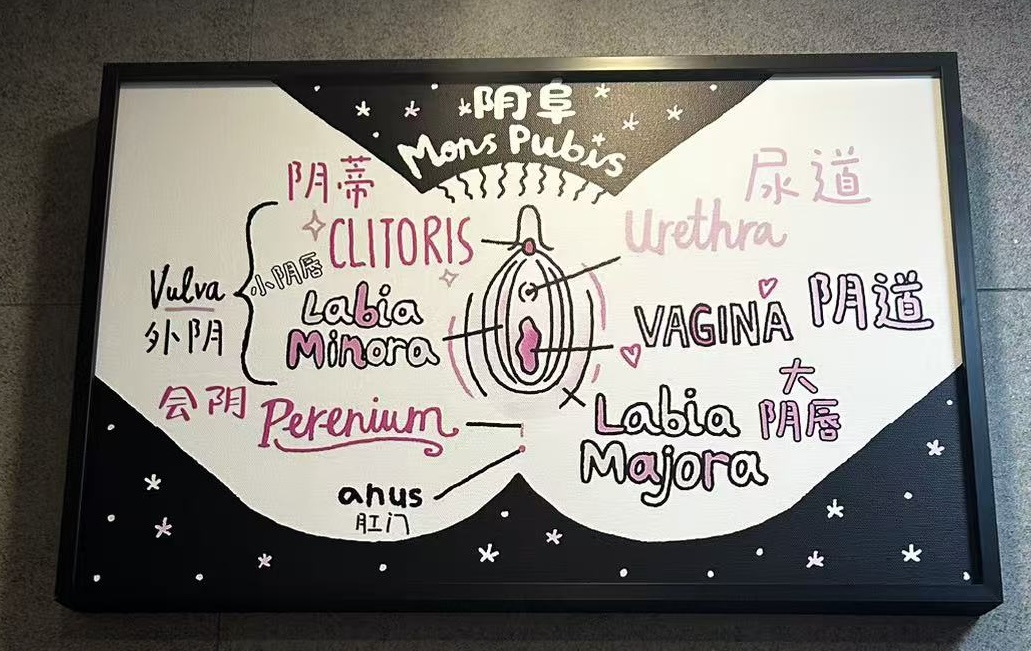 阴阜
Mons Pubis
阴蒂
CLITORIS
小阴唇
Labia
Minora
Vulva
外阴
会阴
Perenium
anus
肛门
尿道
Urethra
VAGINA
阴道
Labia
Majora
大
阴唇